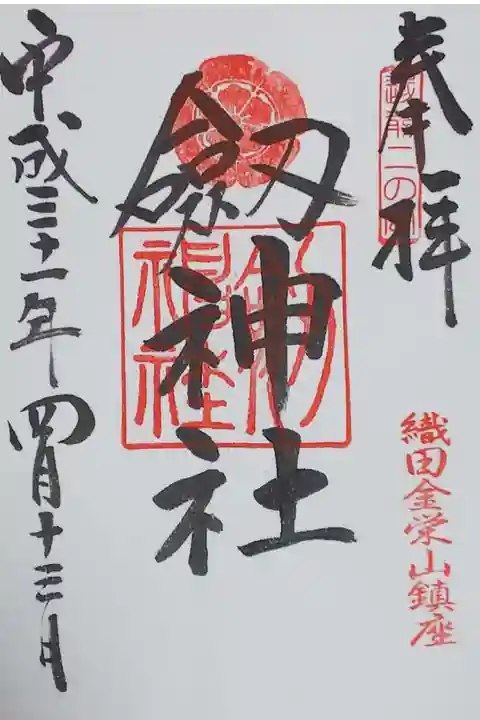 奉拝
越前二の宮
織田金栄山鎮座
劔神社
劔神社
平成三十一年四月十三日